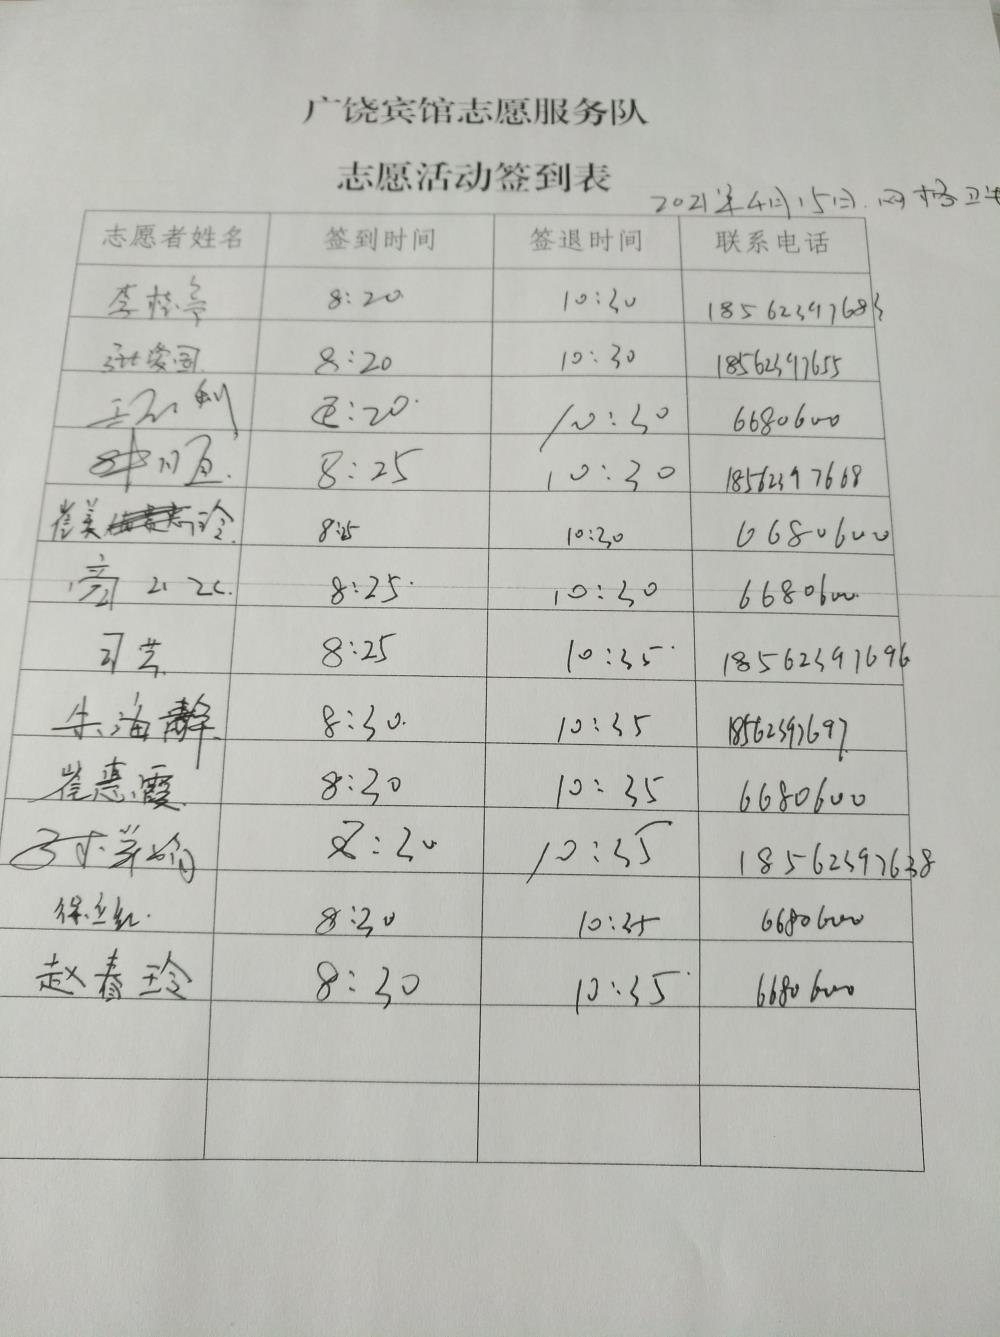 广饶宾馆志愿服务队
志愿活动签到表
2021年4月15日.网格卫生
志愿者姓名 签到时间 签退时间 联系电话
李桂亭 8:20 10:30 18562397683
张爱国 8:20 10:30 18562397655
8:20 10:30 6680600
8:25 10:30 18562397668
崔美玲 8:25 10:30 6680600
8:25 10:30 6680600
司芸 8:25 10:35 18562397696
朱海静 8:30 10:35 18562397697
崔惠霞 8:30 10:35 6680600
8:30 10:35 18562397638
徐立红 8:30 10:35 6680600
赵春玲 8:30 10:35 6680600